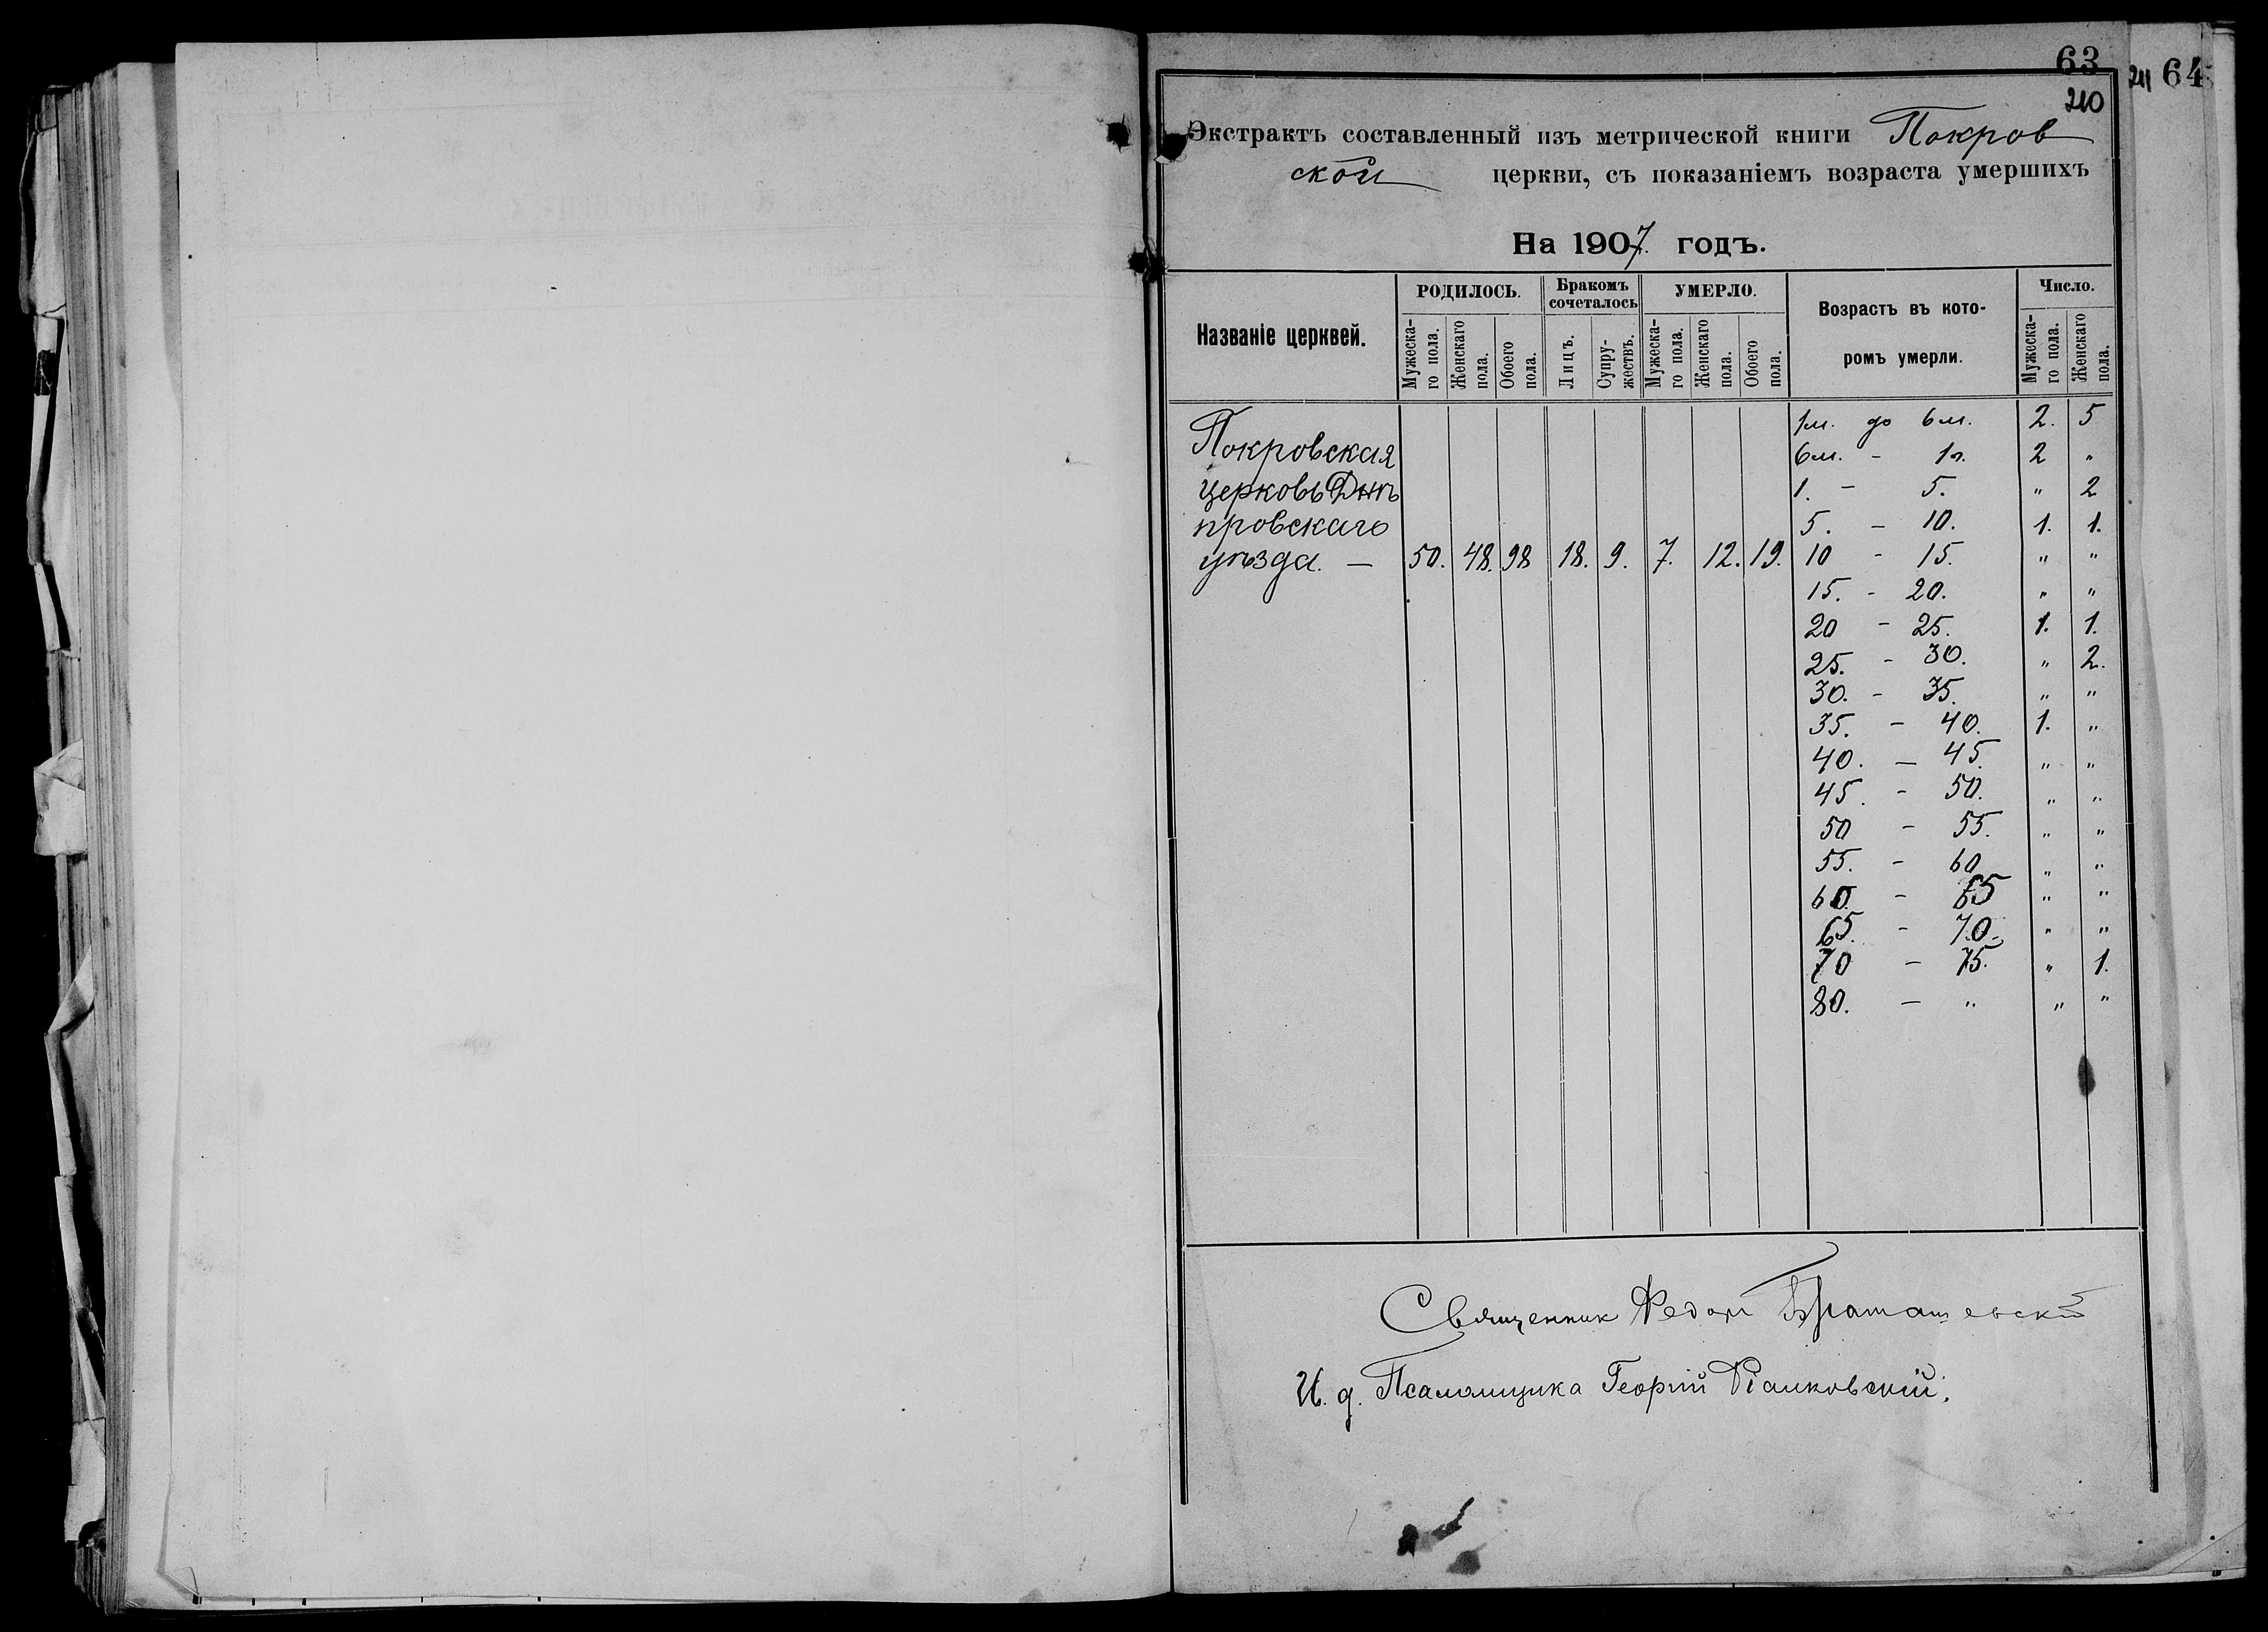 63
210
211 64
Экстрактъ составленный изъ метрической книги Покров
ской церкви, съ показаніемъ возраста умершихъ
На 1907. годъ.
Названіе церквей.
РОДИЛОСЬ.
Бракомъ сочеталось
УМЕРЛО.
Возрастъ въ кото-
ромъ умерли.
Число.
Мужеска-
го пола.
Женскаго
пола.
Обоего
пола.
Лицъ.
Супру-
жествъ.
Мужеска-
го пола.
Женскаго
пола.
Обоего
пола.
Мужеска-
го пола.
Женскаго
пола.
Покровская
церковь Днѣ
провскаго
уѣзда. — 50. 48. 98 18. 9. 7. 12. 19.
1м. до 6м. 2. 5
6м. - 1г. 2 "
1. - 5. " 2
5. - 10. 1. 1.
10 - 15. " "
15. - 20. " "
20 - 25. 1. 1.
25. - 30. " 2.
30. - 35. " "
35. - 40. 1. "
40. - 45. " "
45. - 50. " "
50 - 55. " "
55. - 60 " "
60. - 65 " "
65. - 70. " "
70 - 75. " 1.
80. - " " "
Священник Федоръ
И. д. Псаломщика Георгій